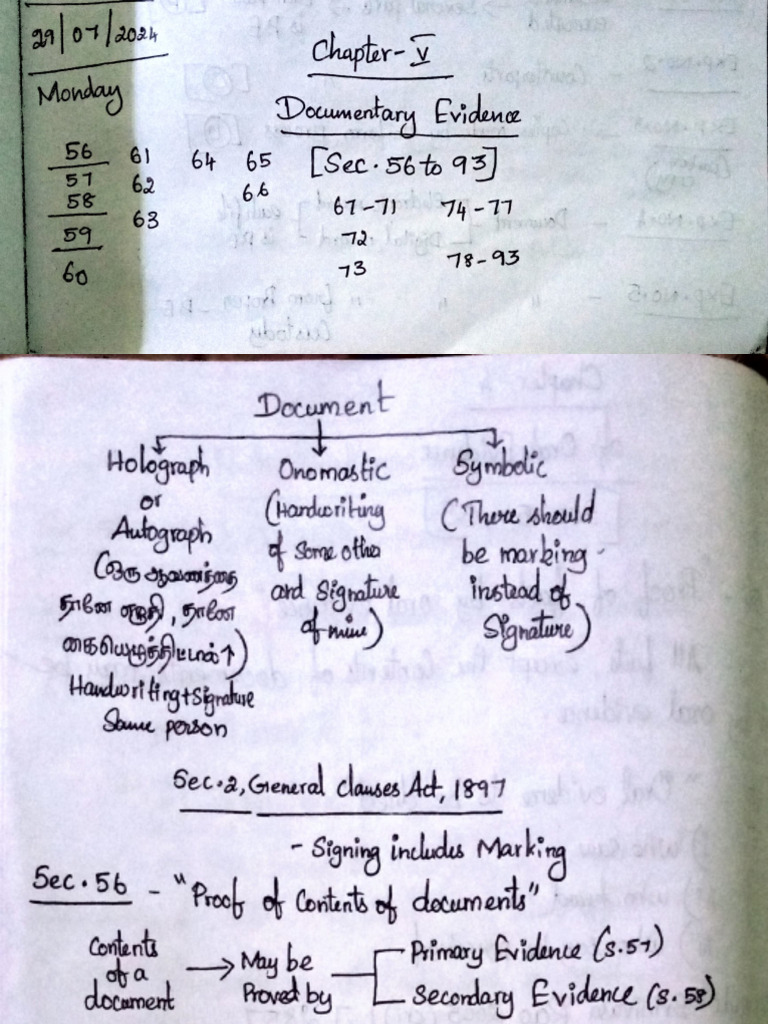 29/07/2024
Monday
Chapter-V
Documentary Evidence
[Sec. 56 to 93]
56 61 64 65
57 62 66 67-71 74-77
58 63 72
59 73 78-93
60
Document
Holograph
or
Autograph
(ஒரு ஆவணத்தை
தானே எழுதி, தானே
கையெழுத்திட்டால்↑)
Handwriting+Signature
Same person
Onomastic
(Handwriting
of Some other
and Signature
of mine)
Symbolic
(There should
be marking
instead of
Signature)
Sec.2, General clauses Act, 1897
- Signing includes Marking
Sec. 56 - "Proof of Contents of documents"
Contents
of a
document
May be
Proved by
Primary Evidence (s.57)
Secondary Evidence (s.58)